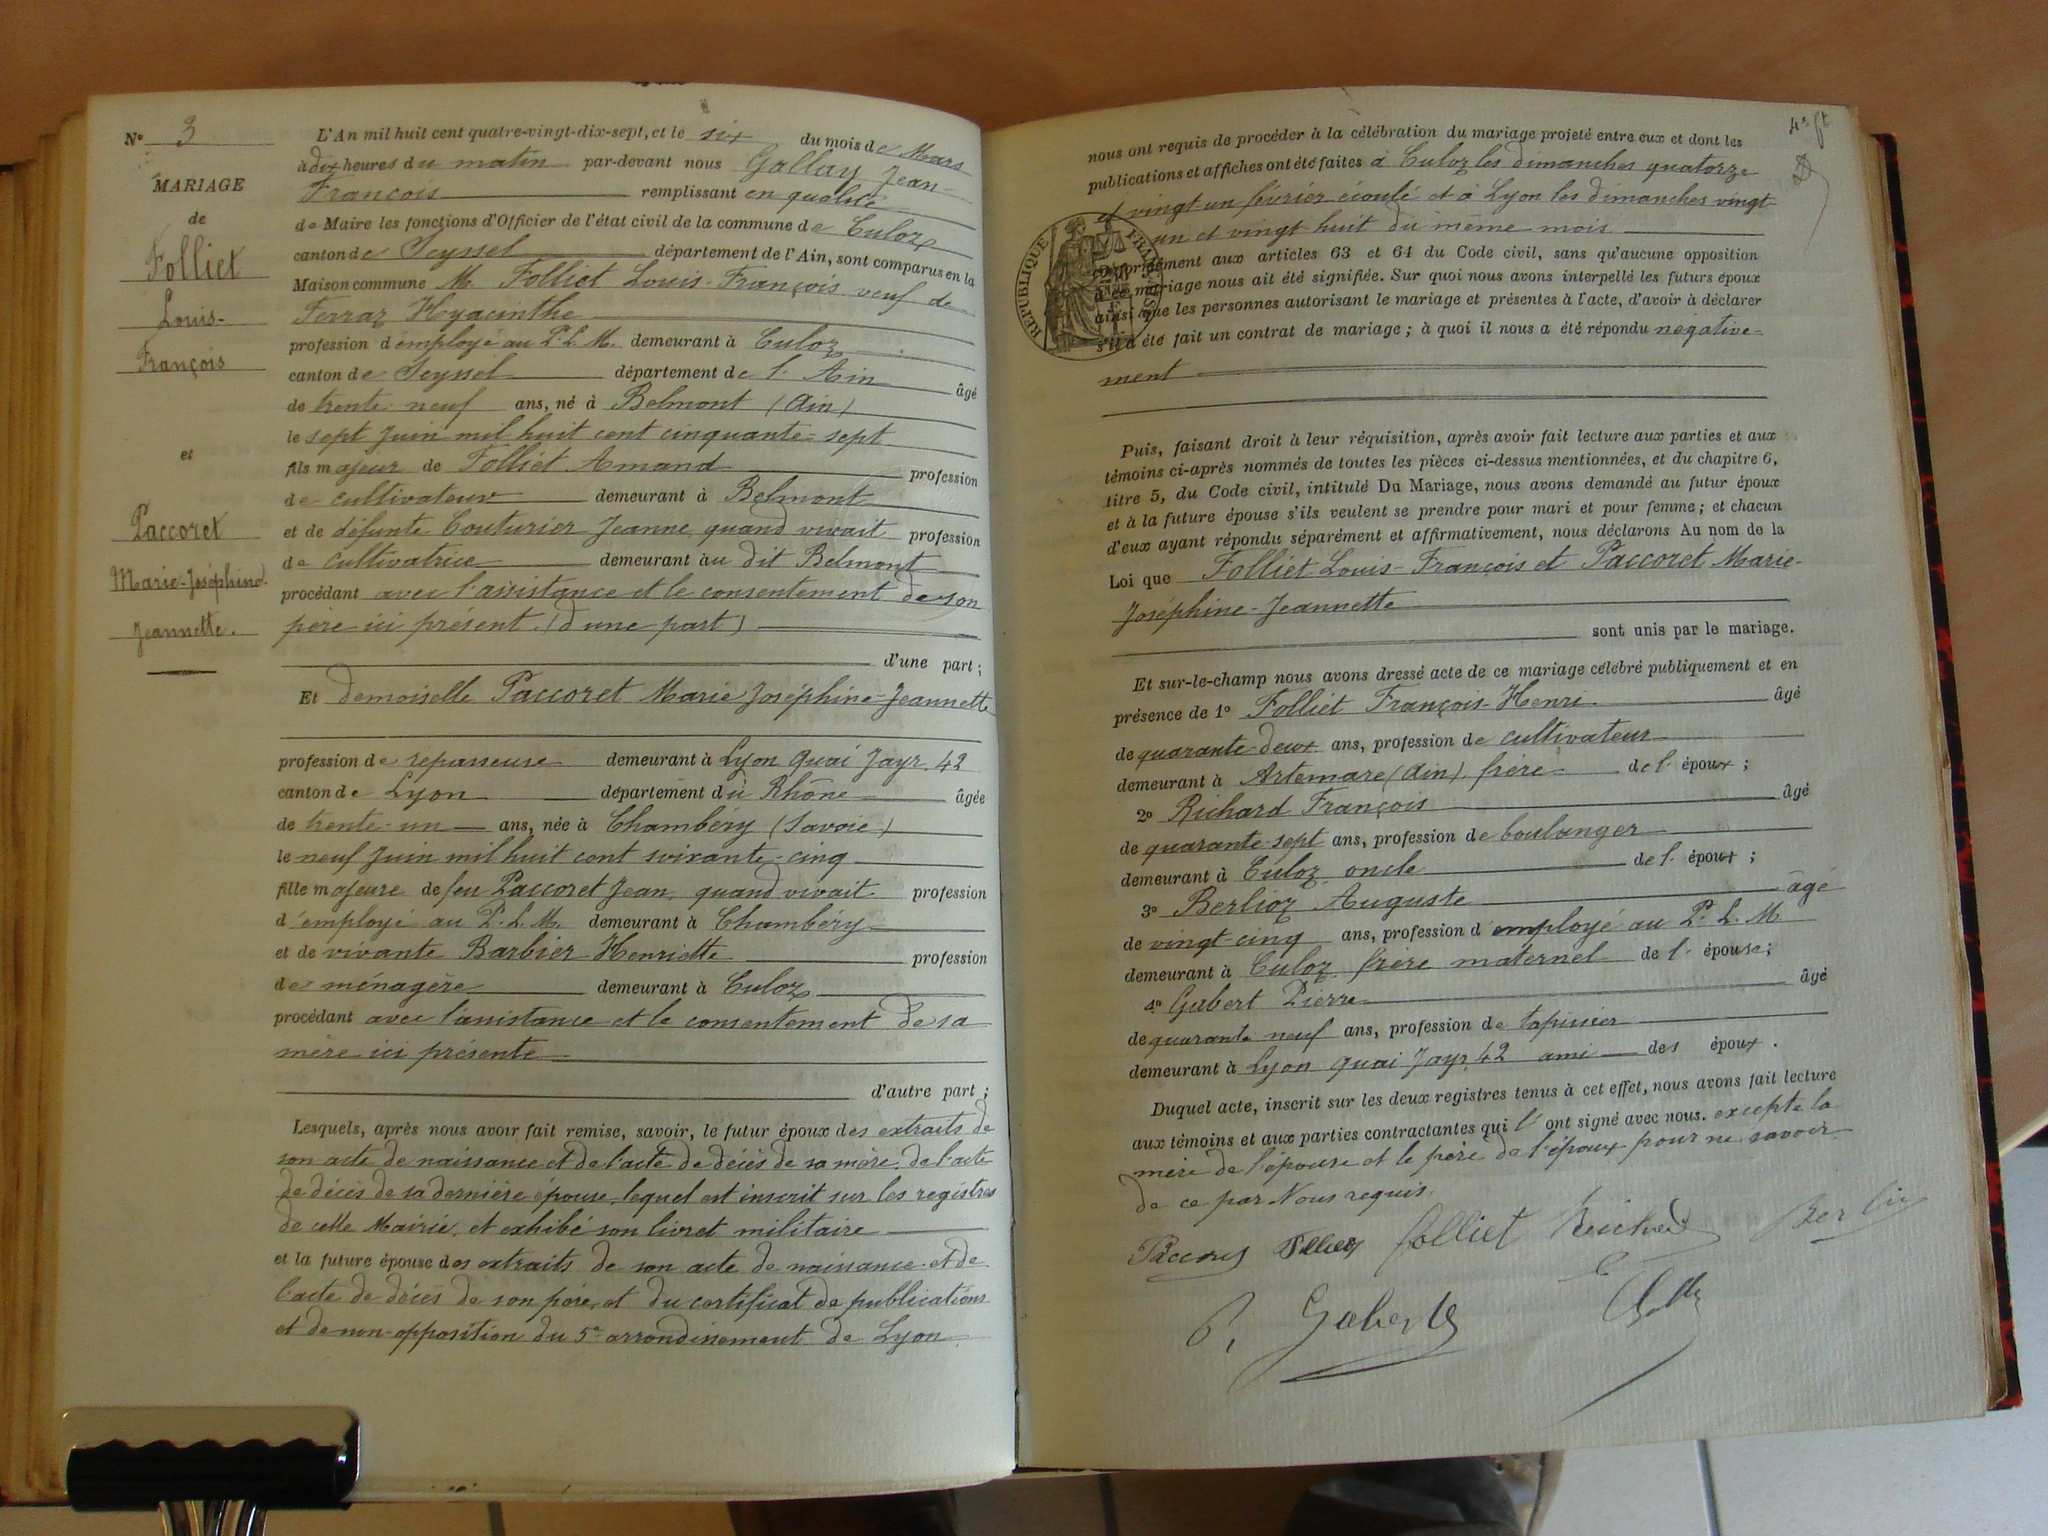 N° 3
MARIAGE
de
Folliet
Louis-
François
et
Paccoret
Marie-Joséphine
Jeannette.
L'An mil huit cent quatre-vingt-dix-sept, et le six du mois de Mars
à dix heures du matin par-devant nous Gallay Jean-
François remplissant en qualité
de Maire les fonctions d'Officier de l'état civil de la commune de Culoz
canton de Seyssel département de l'Ain, sont comparus en la
Maison commune M. Folliet Louis-François veuf de
Ferraz Hyacinthe
profession d employé au P. L. M. demeurant à Culoz
canton de Seyssel département de l'Ain âgé
de trente-neuf ans, né à Belmont (Ain)
le sept Juin mil huit cent cinquante-sept
fils majeur de Folliet Amand profession
de cultivateur demeurant à Belmont
et de défunte Couturier Jeanne, quand vivait profession
de cultivatrice demeurant au dit Belmont
procédant avec l'assistance et le consentement de son
père ici présent. (d'une part)
d'une part ;
Et demoiselle Paccoret Marie Joséphine-Jeannette
profession de repasseuse demeurant à Lyon Quai Jayr. 42
canton de Lyon département du Rhône âgée
de trente-un ans, née à Chambéry (Savoie)
le neuf Juin mil huit cent soixante-cinq
fille majeure de feu Paccoret Jean, quand vivait profession
d'employé au P. L. M. demeurant à Chambéry
et de vivante Barbier Henriette profession
de ménagère demeurant à Culoz
procédant avec l'assistance et le consentement de sa
mère ici présente
d'autre part ;
Lesquels, après nous avoir fait remise, savoir, le futur époux des extraits de
son acte de naissance et de l'acte de décès de sa mère, de l'acte
de décès de sa dernière épouse, lequel est inscrit sur les registres
de cette Mairie, et exhibé son livret militaire
et la future épouse des extraits de son acte de naissance et de
l'acte de décès de son père, et du certificat de publications
et de non-opposition du 5e arrondissement de Lyon.
nous ont requis de procéder à la célébration du mariage projeté entre eux et dont les
publications et affiches ont été faites à Culoz les dimanches quatorze
et vingt un février écoulé et à Lyon les dimanches vingt-
un et vingt-huit du même mois
REPUBLIQUE FRANÇAISE
conformément aux articles 63 et 64 du Code civil, sans qu'aucune opposition
à ce mariage nous ait été signifiée. Sur quoi nous avons interpellé les futurs époux
ainsi que les personnes autorisant le mariage et présentes à l'acte, d'avoir à déclarer
s'il a été fait un contrat de mariage ; à quoi il nous a été répondu négative-
ment
Puis, faisant droit à leur réquisition, après avoir fait lecture aux parties et aux
témoins ci-après nommés de toutes les pièces ci-dessus mentionnées, et du chapitre 6,
titre 5, du Code civil, intitulé Du Mariage, nous avons demandé au futur époux
et à la future épouse s'ils veulent se prendre pour mari et pour femme ; et chacun
d'eux ayant répondu séparément et affirmativement, nous déclarons Au nom de la
Loi que Folliet Louis-François et Paccoret Marie-
Joséphine-Jeannette
sont unis par le mariage.
Et sur-le-champ nous avons dressé acte de ce mariage célébré publiquement et en
présence de 1° Folliet François-Henri âgé
de quarante-deux ans, profession de cultivateur
demeurant à Artemare (Ain) frère de l'époux ;
2° Richard François âgé
de quarante-sept ans, profession de boulanger
demeurant à Culoz oncle de l'époux ;
3° Berlioz Auguste âgé
de vingt-cinq ans, profession d'employé au P. L. M
demeurant à Culoz frère maternel de l'épouse ;
4° Gabert Pierre âgé
de quarante neuf ans, profession de tapissier
demeurant à Lyon quai Jayr 42 ami des époux.
Duquel acte, inscrit sur les deux registres tenus à cet effet, nous avons fait lecture
aux témoins et aux parties contractantes qui l'ont signé avec nous. excepté la
mère de l'épouse et le père de l'époux pour ne savoir
de ce par Nous requis.
Folliet Richard
P. Gabert